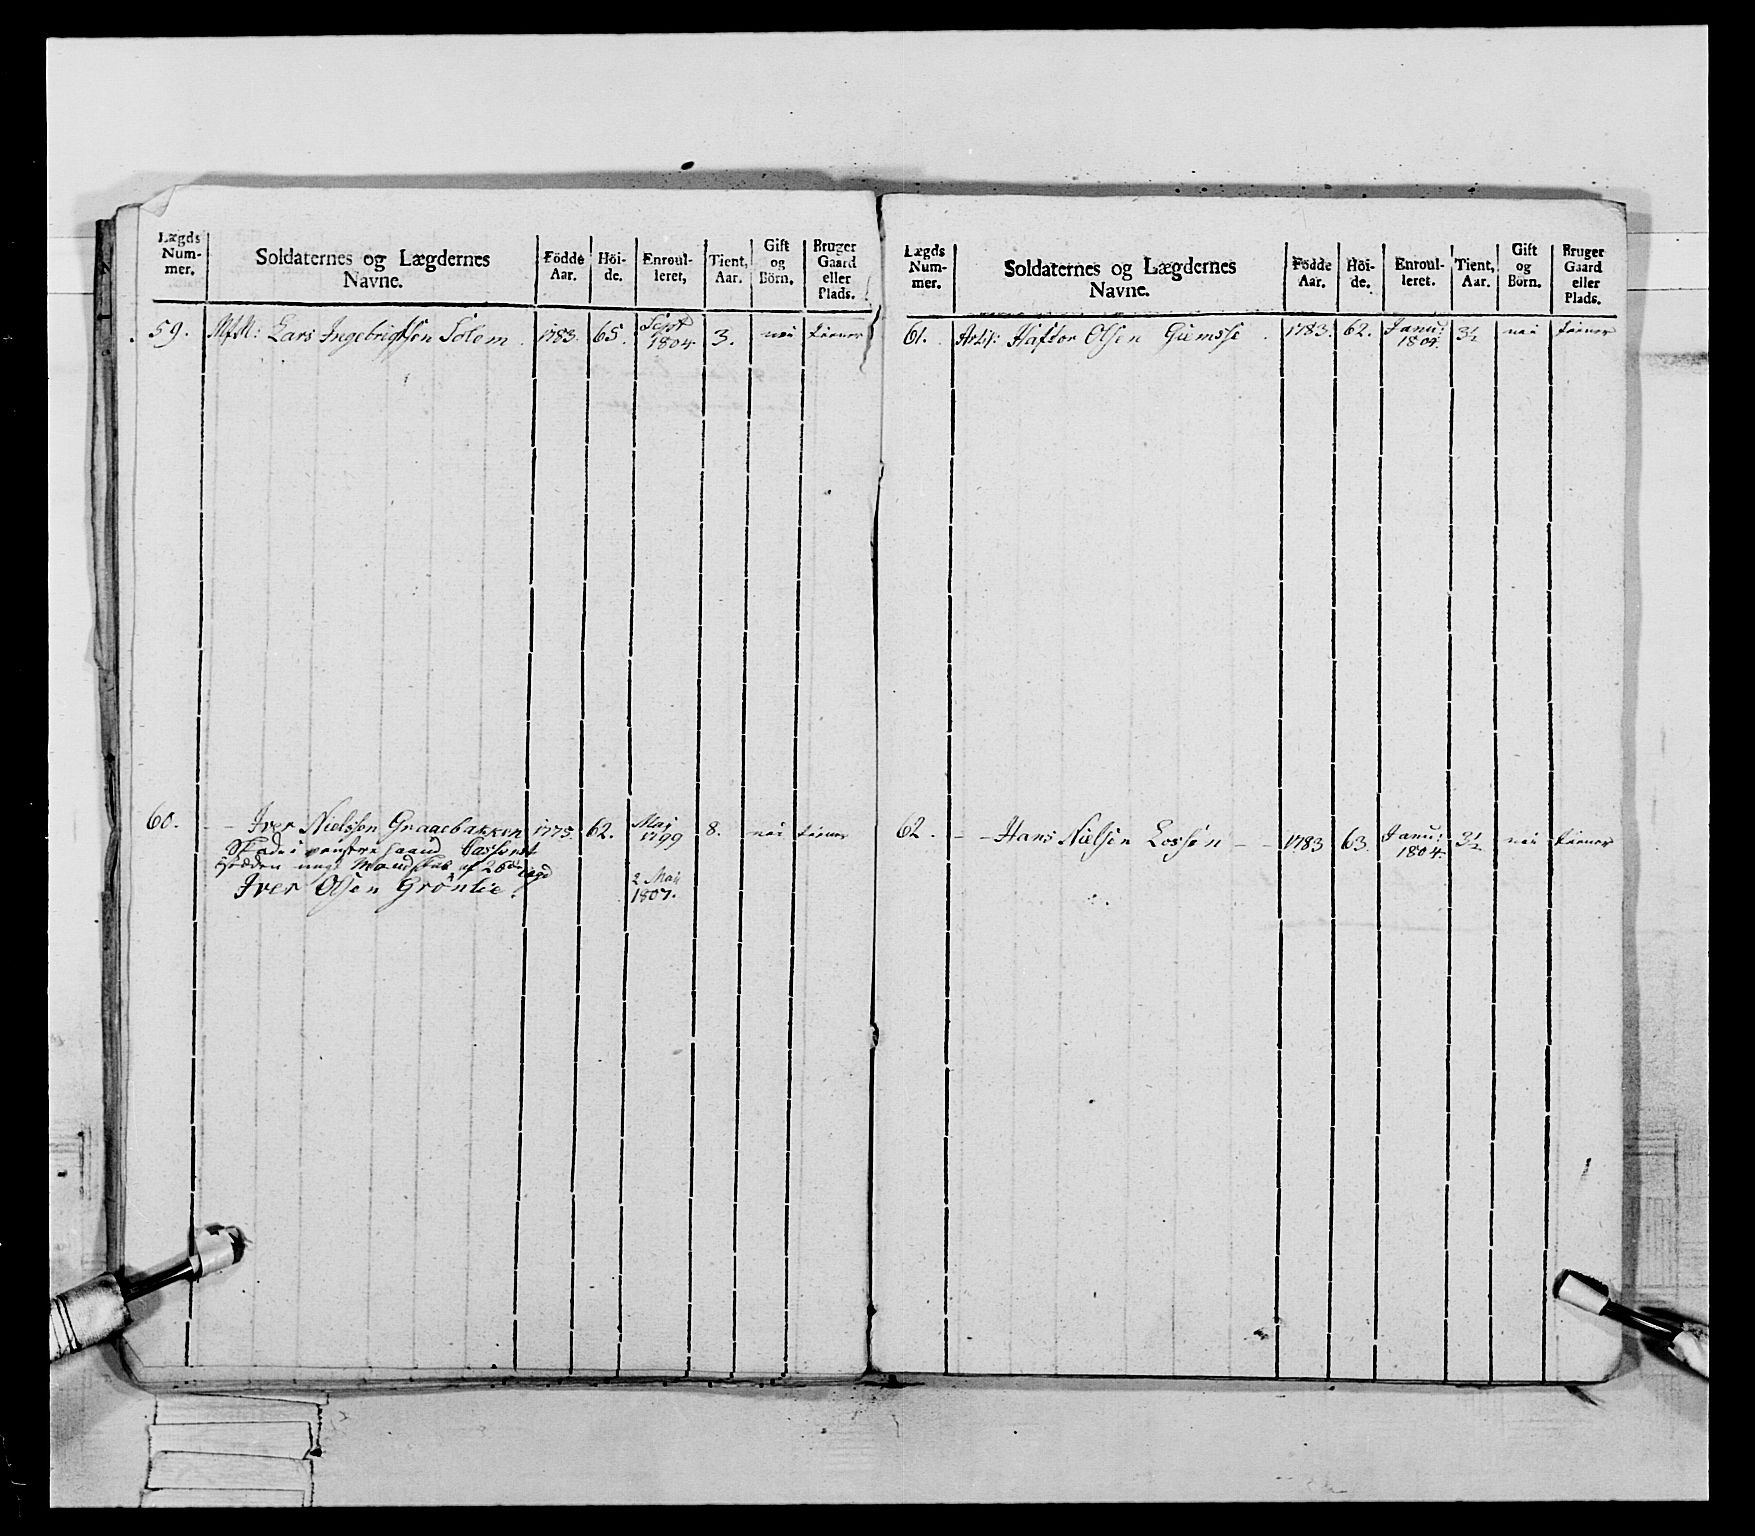 Lægds Num- mer.
Soldaternes og Lægdernes Navne.
Födde Aar.
Höi- de.
Enroul- leret,
Tient, Aar.
Gift og Börn.
Bruger Gaard eller Plads.
59. Lars Ingebrigtsen Solem 1783. 65. Sept 1804. 3. nei tiener
60. – Iver Nielsen Graaebakken 1775. 62. Maj 1799 8. nei tiener
Skade i venstre haand Casseret
ungt Mandskab af 26de Lægd
Iver Olsen Grönlie. 2 Maii 1807.
Lægds Num- mer.
Soldaternes og Lægdernes Navne.
Födde Aar.
Höi- de.
Enroul- leret.
Tient, Aar.
Gift og Börn.
Bruger Gaard eller Plads.
61. Artil: Haftor Olsen 1783. 62. Janu: 1804. 3½ nei tiener
62. – – Hans Nielsen Lossen – – 1783 63. Janu: 1804. 3½ nei tiener